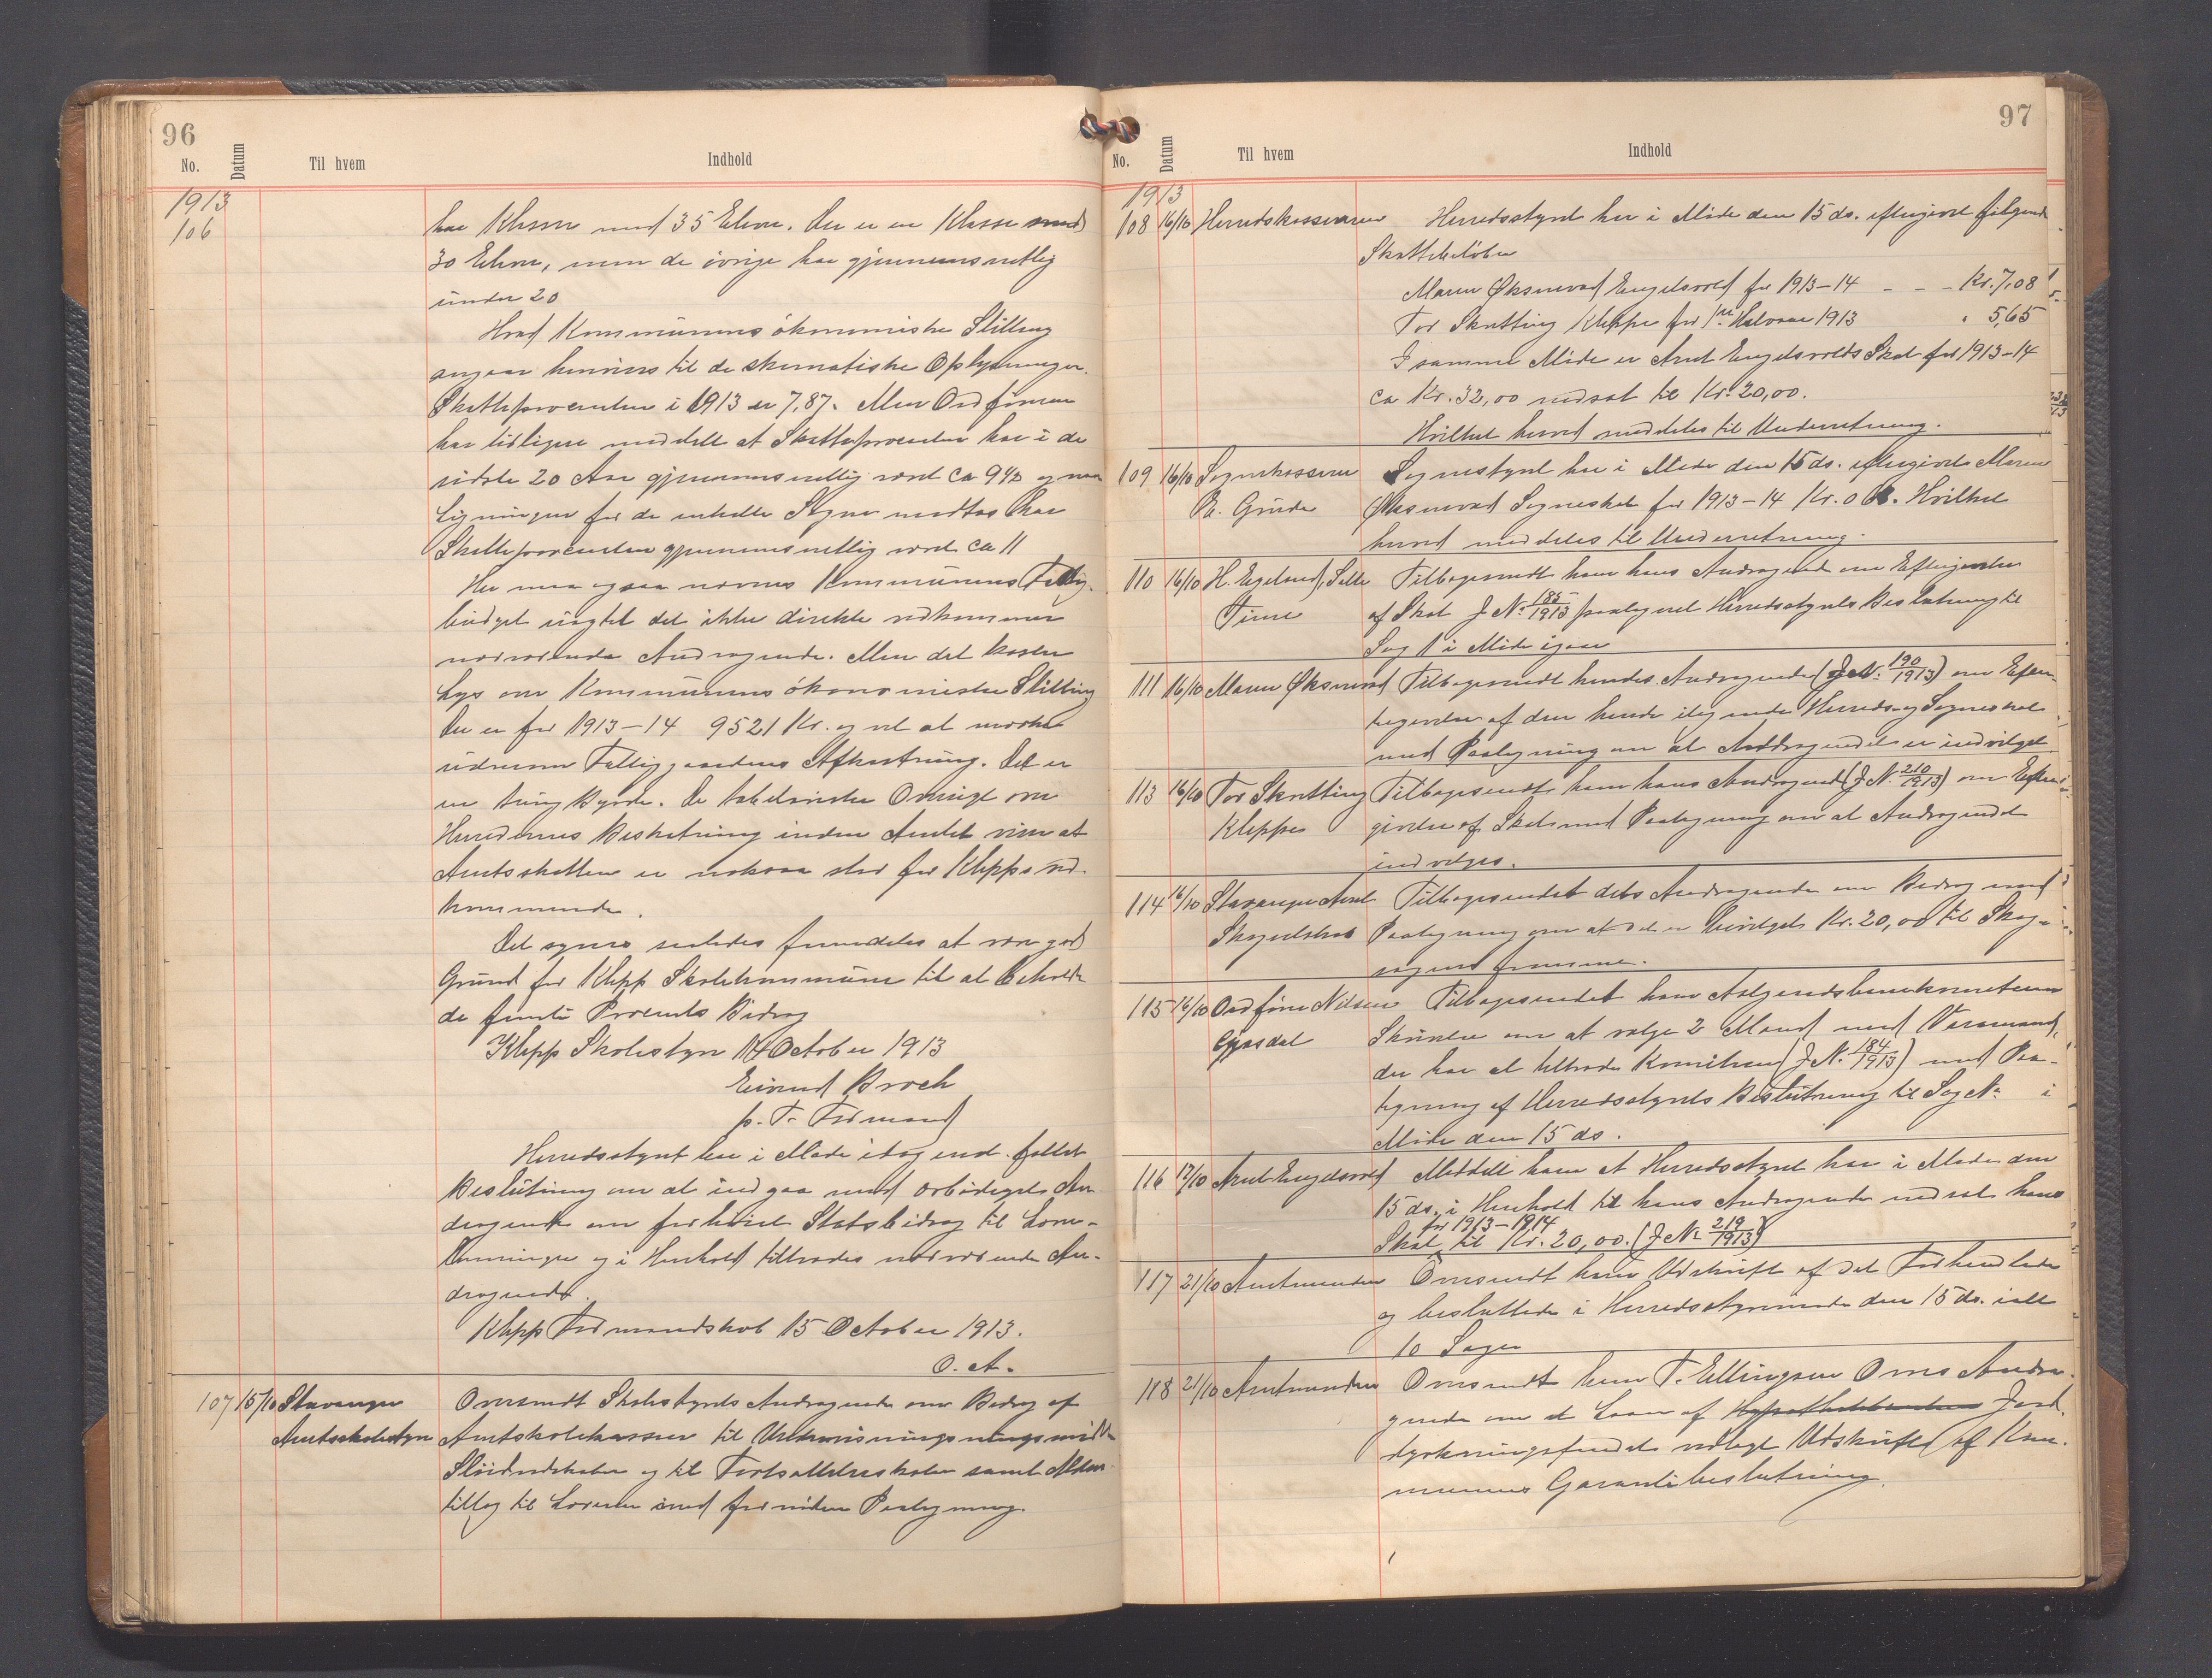 96
No. Datum Til hvem Indhold
1913
106
har Klasser med 35 Elever. Der er en Klasse med
30 Elever, men de øvrige har gjennemsnitlig
under 20
Hvad Kommunens økonomiske Stilling
angaar henvises til de skematiske Oplysninger.
Skatteprocenten i 1913 er 7,87. Men Ordføreren
har tidligere meddelt at Skatteprocenten har i de
sidste 20 Aar gjennemsnitlig været ca 9½ og naar
Ligningen for de enkelte Sogne medtas har
Skatteprocenten gjennemsnitlig været ca 11
Her maa ogsaa nævnes Kommunens Fattig-
budget uagtet det ikke direkte vedkommer
nærværende Andragende. Men det kaster
Lys over Kommunens økonomiske Stilling
Det er for 1913-14 9521 Kr. og vel at mærke
udenom Fattiggaardens Afkastning. Det er
en tung Byrde. De tabelariske Oversigt over
Herredernes Beskatning inden Amtet viser at
Amtsskatten er ogsaa stor for Klepps ved-
kommende.
Det synes saaledes fremdeles at være god
Grund for Klepp Skolekommune til at beholde
de femti Procents Bidrag
Klepp Skolestyre 14 October 1913
Eivind Broch
p. T. Formand
Herredsstyret har i Møde idag end. fattet
Beslutning om at indgaa med ærbødigst An-
dragende om forhøiet Statsbidrag til Lærer-
lønninger og i Henhold tiltrædes nærværende An-
dragende.
Klepp Formandskab 15 October 1913.
O. A.
107 15/10 Stavanger Oversendt Skolestyrets Andragende om Bidrag af
Amtsskolestyre Amtsskolekassen til Undervisningsmidler
Sløidredskaber og til Fortsættelsesskolen samt Alders-
tillæg til Læreren med fornøden Paategning.
97
No. Datum Til hvem Indhold
1913
108 16/10 Herredskasseren Herredsstyret har i Møde den 15 ds. eftergivet følgende
Skattebeløber
Maren Øksnevad Engelsvold for 1913-14 - - - Kr. 7,08
Tor Skretting Kleppe for 1ste Halvaar 1913 " 5,65
I samme Møde er Arnt Engelsvolds Skat for 1913-14
ca Kr. 32,00 nedsat til Kr. 20,00.
Hvilket herved meddeles til Underretning.
109 16/10 Sognekasserer Sognestyret har i Møde den 15 ds. eftergivet Maren
Øksnevad Sogneskat for 1913-14 Kr. Hvilket
herved meddeles til Underretning.
110 16/10 H. Egeland, Selle Tilbagesendt ham hans Andragende om Eftergivelse
Time af Skat J No. 185/1913 paategnet Herredsstyrets Beslutning til
Sag 1 i Møde igaar
111 16/10 Maren Øksnevad Tilbagesendt hendes Andragende (J No. 190/1913) om Efter-
givelse af den hende ilignede Herreds og Sogneskat
med Paategning om at Andragendet er indvilget
113 16/10 Tor Skretting Tilbagesendt ham hans Andragende (J No. 210/1913) om Efter-
Kleppe givelse af Skat med Paategning om at Andragendet
indvilges.
114 16/10 Stavanger Amt Tilbagesendt dets Andragende om Bidrag med
Skogselskab Paategning om at det er bevilget Kr. 20,00 til Skog-
sagens fremme.
115 16/10 Ordfører Nilsen Tilbagesendt ham
Gjesdal Skrivelse om at vælge 2 Mænd med Varamænd,
der har at tiltræde Komiteen (J No. 184/1913) med Paa-
tegning af Herredsstyrets Beslutning til Sag No. i
Møde den 15 ds.
116 17/10 Arnt Engelsvold Meddelt ham at Herredsstyret har i Møde den
15 ds. i Henhold til hans Andragende nedsat hans
for 1913-1914
Skat til Kr. 20,00. (J No 219/1913)
117 21/10 Amtmanden Oversendt ham Udskrift af det Forhandlede
og besluttede i Herredsstyremøde den 15 ds. ialt
10 Sager
118 21/10 Amtmanden Oversendt ham T. Ellingsen Orres Andra-
gende om et Laan af Hypothekbanken Jord-
dyrkningsfondet vedlagt Udskrift af Kom-
munens Garantibeslutning.